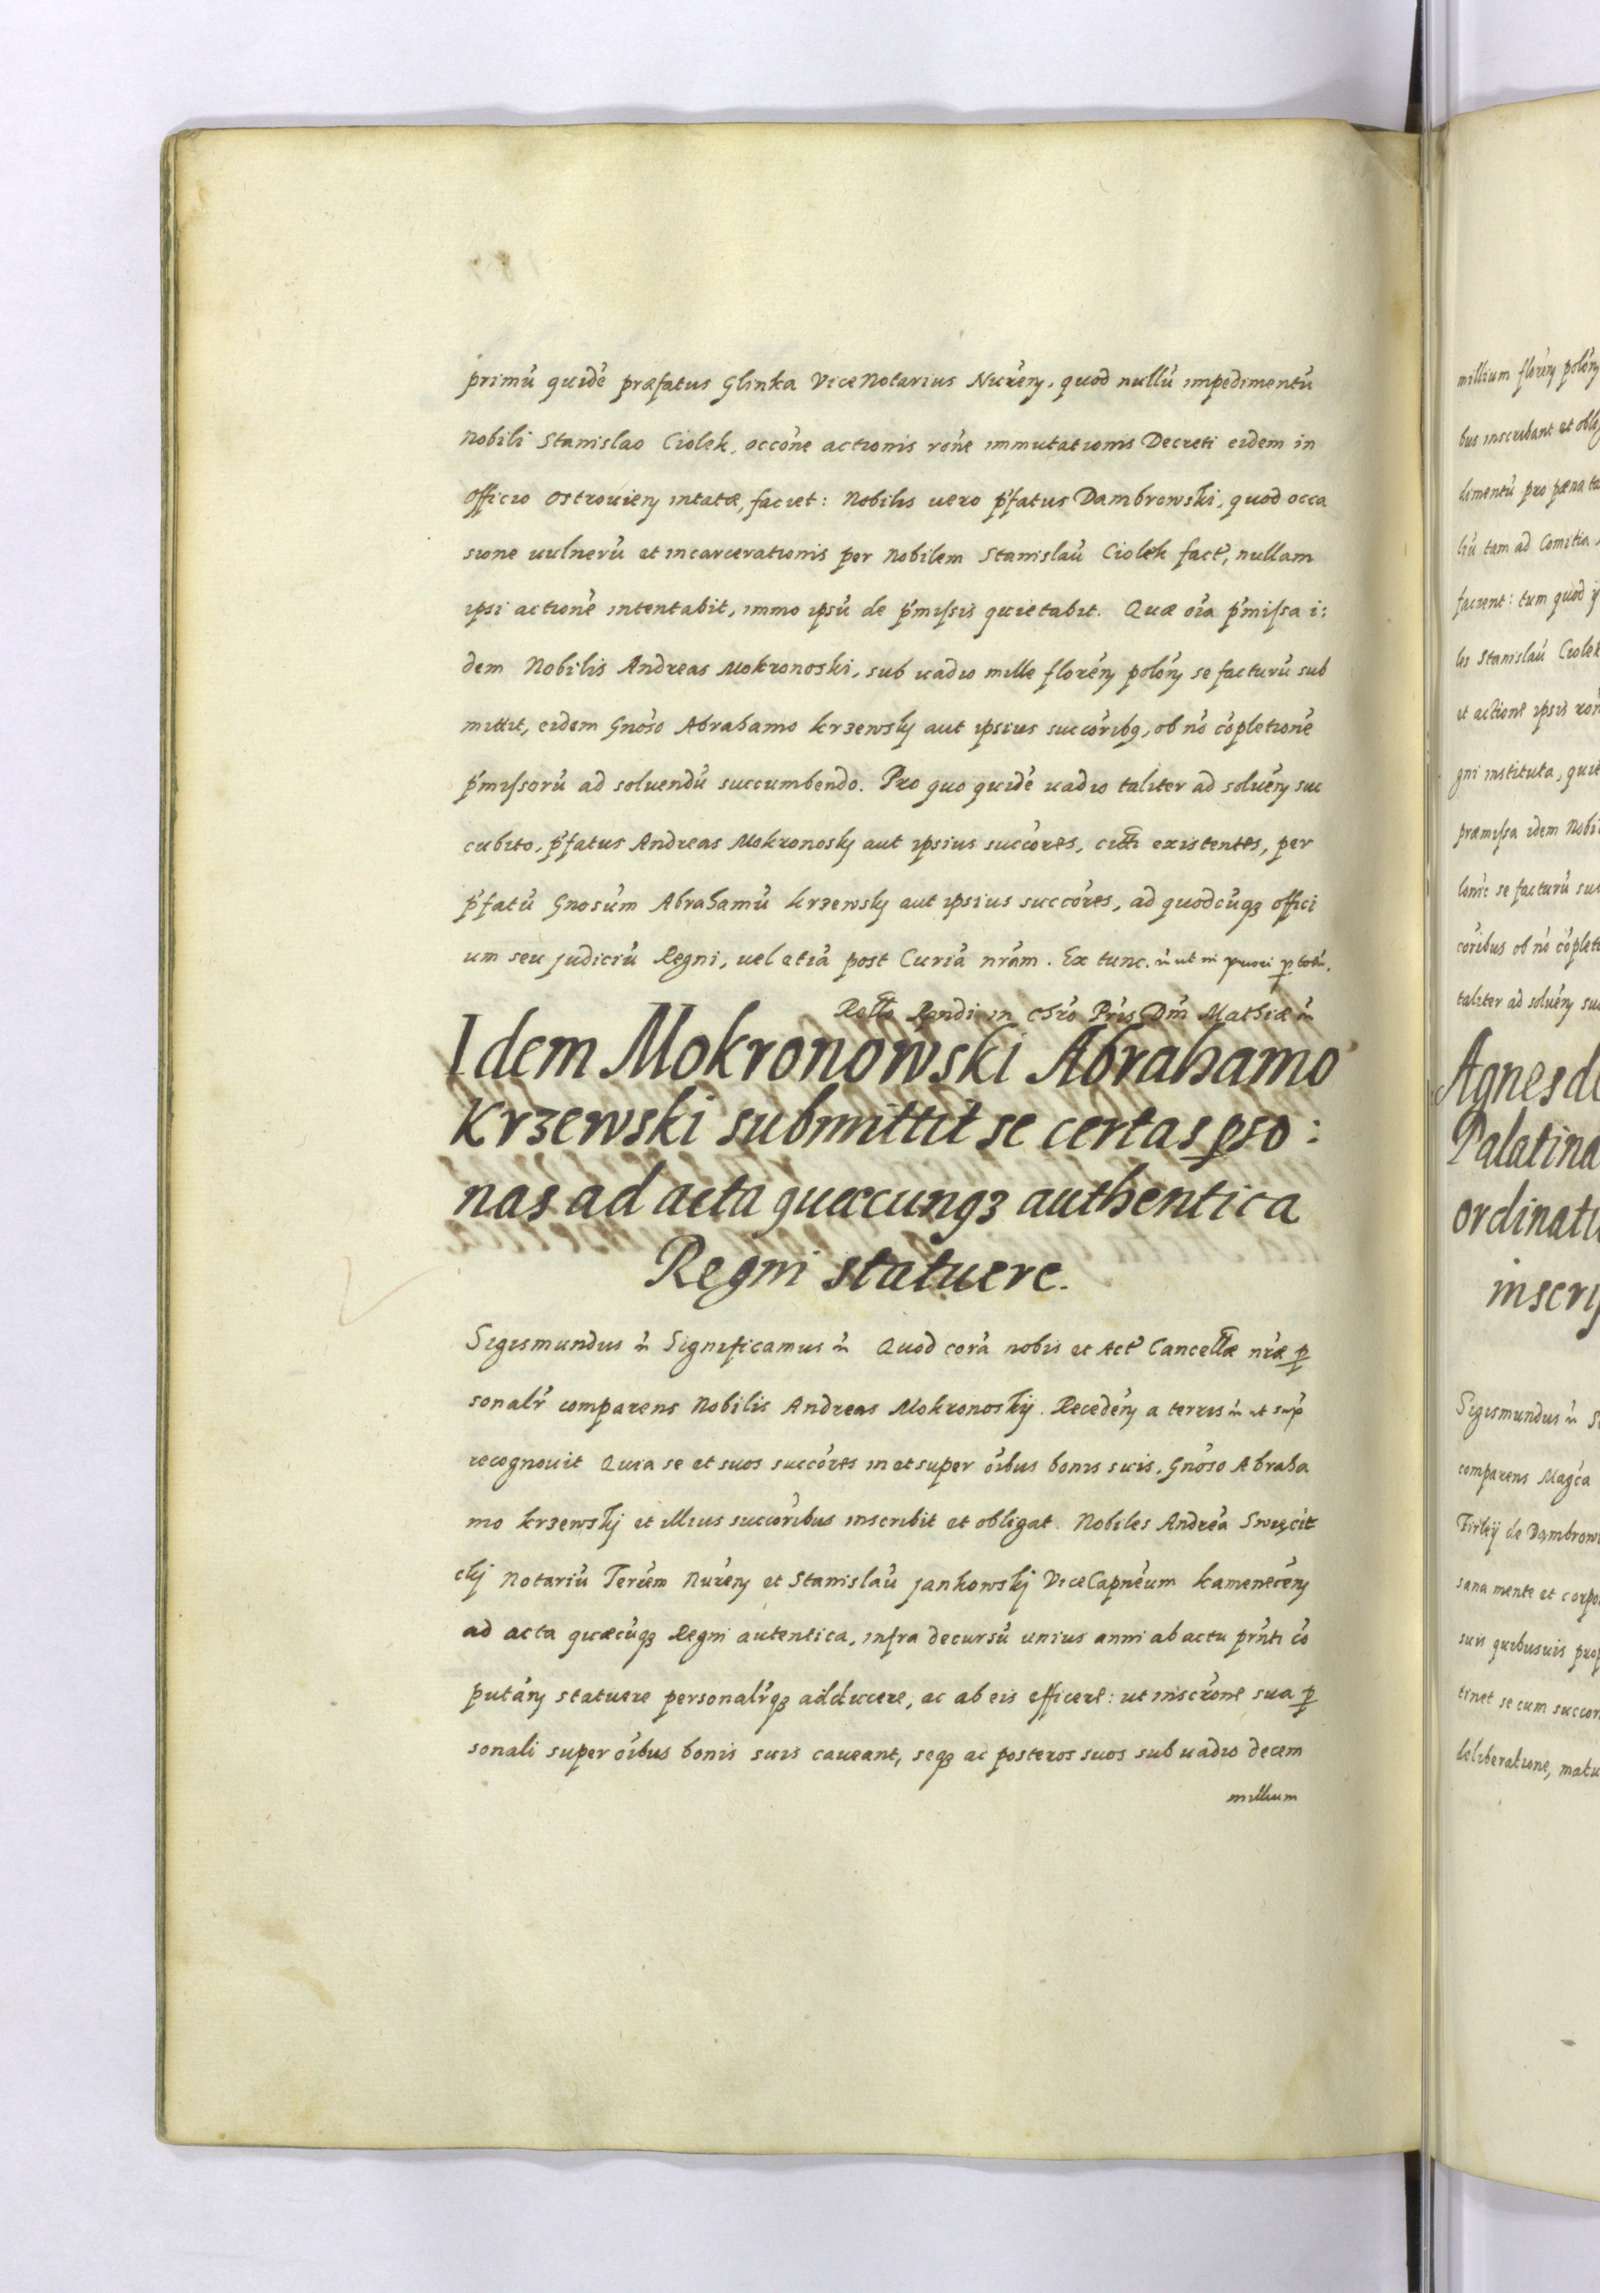 primũ quidẽ præfatus Glinka ViceNotarius Nureñ. quod nullũ impedimentũ
Nobili Stanislao Ciolek, occõne actionis rõne immutationis Decreti eidem in
Officio Ostrouieñ intatæ, faciet: Nobilis uero p̃fatus Dambrowski, quod occa
sione uulnerũ et incarcerationis per Nobilem Stanislaũ Ciolek fact̃, nullam
ipsi actionẽ intentabit, immo ipsũ de p̃missis quietabit. Quæ oĩa p̃missa i:
dem Nobilis Andreas Mokronoski, sub uadio mille floreñ poloñ se facturũ sub
mittit, eidem Gnõso Abrahamo Krzewskj aut ipsius succõribq, ob nõ cõpletionẽ
p̃missorũ ad soluendũ succumbendo. Pro quo quidẽ uadio taliter ad solueñ suc
cubito, p̃fatus Andreas Mokronoskj aut ipsius succõres, citti existentes, per
p̃fatũ Gnosũm Abrahamũ Krzewskj aut ipsius succõres, ad quodcũqz offici
um seu judiciũ Regni, uel etiã post Curiã nrãm. Ex tunc. ut in priori p totũ.
Rello Rendi in Chrõ Prĩs Dnĩ Mathiæ
Idem Mokronowski Abrahamo
Krzewski submittit se certas pso:
nas ad acta quæcunqz authentica
Regni statuere.
Sigismundus ẽ Significamus ẽ Quod corã nobis et Act̃ Cancellæ nræ p
sonalr̃ comparens Nobilis Andreas Mokronoskij. Recedeñ a terris ẽ ut sup̃
recognouit Quia se et suos succõres in et super oĩbus bonis suis, Gnõso Abraha
mo Krzewskj et illius succõribus inscribit et obligat. Nobiles Andreã Swięcic
ckj Notariũ Terũm Nureñ et Stanislaũ Jankowskj ViceCapneũm Kameneceñ
ad acta quæcũqz Regni autentica, infra decursũ unius anni ab actu prñti cõ
putañ statuere personalr̃qz adducere, ac ab eis efficere: ut inscrõne sua p
sonali super oĩbus bonis suis caueant, seqz ac posteros suos sub uadio decem
millium
millium floreñ poloñ
bus inscribant et obli
limentũ pro pæna ta
liũ tam ad Comitia
facient: tum quod
les Stanislaũ Ciolek
et actione ipsis
gni instituta,
præmissa idem Nobi
se facturũ su
coribus ob nõ cõplet
taliter ad solueñ su
Agnes de
Palatina
ordinati
inscrip
Sigismundus ẽ
comparens Magca
Firleij de Dambrow
sana mente et corpo
suis quibusuis prop
tinet se cum succor
deliberatione, matu